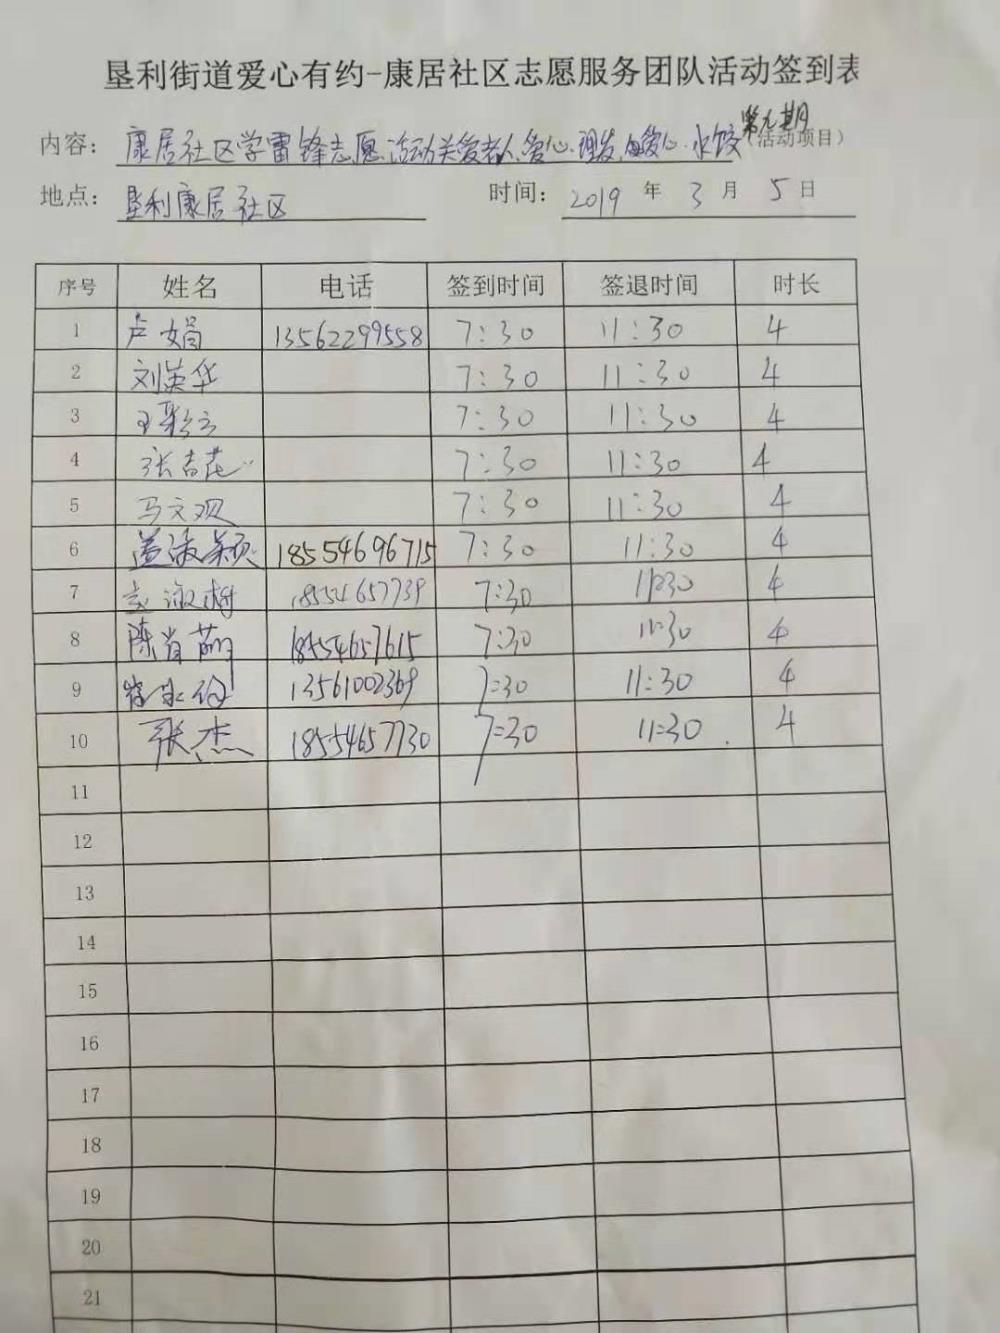 垦利街道爱心有约-康居社区志愿服务团队活动签到表
第九期
内容： 康居社区学雷锋志愿活动关爱老人、爱心·理发,爱心·水饺（活动项目）
地点： 垦利康居社区 时间： 2019 年 3 月 5 日
序号 姓名 电话 签到时间 签退时间 时长
1 卢娟 13562299558 7:30 11:30 4
2 刘英华 7:30 11:30 4
3 王彩云 7:30 11:30 4
4 张吉花 7:30 11:30 4
5 马文观 7:30 11:30 4
6 盖淑颖 18554696715 7:30 11:30 4
7 淑梅 18554657739 7:30 11:30 4
8 陈肖萌 18554657615 7:30 11:30 4
9 13561002369 7:30 11:30 4
10 张杰 18554657730 7:30 11:30 4
11
12
13
14
15
16
17
18
19
20
21